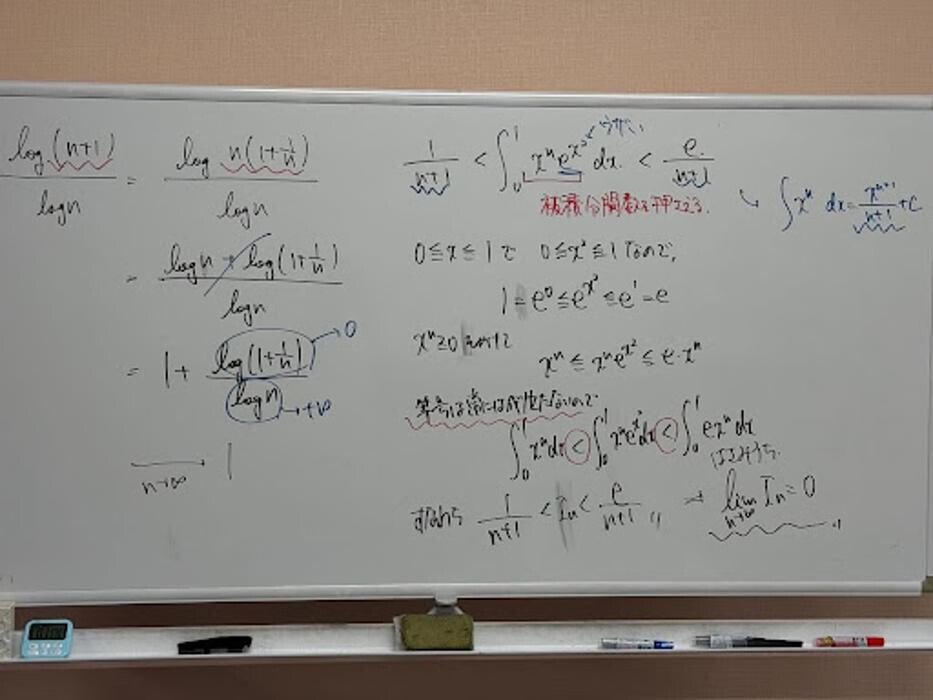 log(n+1)/log n = log n(1+1/n)/log n
= log n + log(1+1/n)/log n
= 1 + log(1+1/n)/log n → 0
→ +∞
→ 1
n→∞
1/(n+1) < ∫₀¹ xⁿe^(x²) dx < e/(n+1)
被積分関数を押さえる.
∫xⁿ dx = xⁿ⁺¹/(n+1) + C
0≦x≦1で 0≦x²≦1なので,
1 = e⁰ ≦ e^(x²) ≦ e¹ = e
xⁿ≧0
xⁿ ≦ xⁿe^(x²) ≦ e·xⁿ
等号は常には成立しないので
∫₀¹ xⁿdx < ∫₀¹ xⁿe^(x²)dx < ∫₀¹ exⁿdx
すなわち 1/(n+1) < Iₙ < e/(n+1) 〃 → lim Iₙ = 0 〃
n→∞